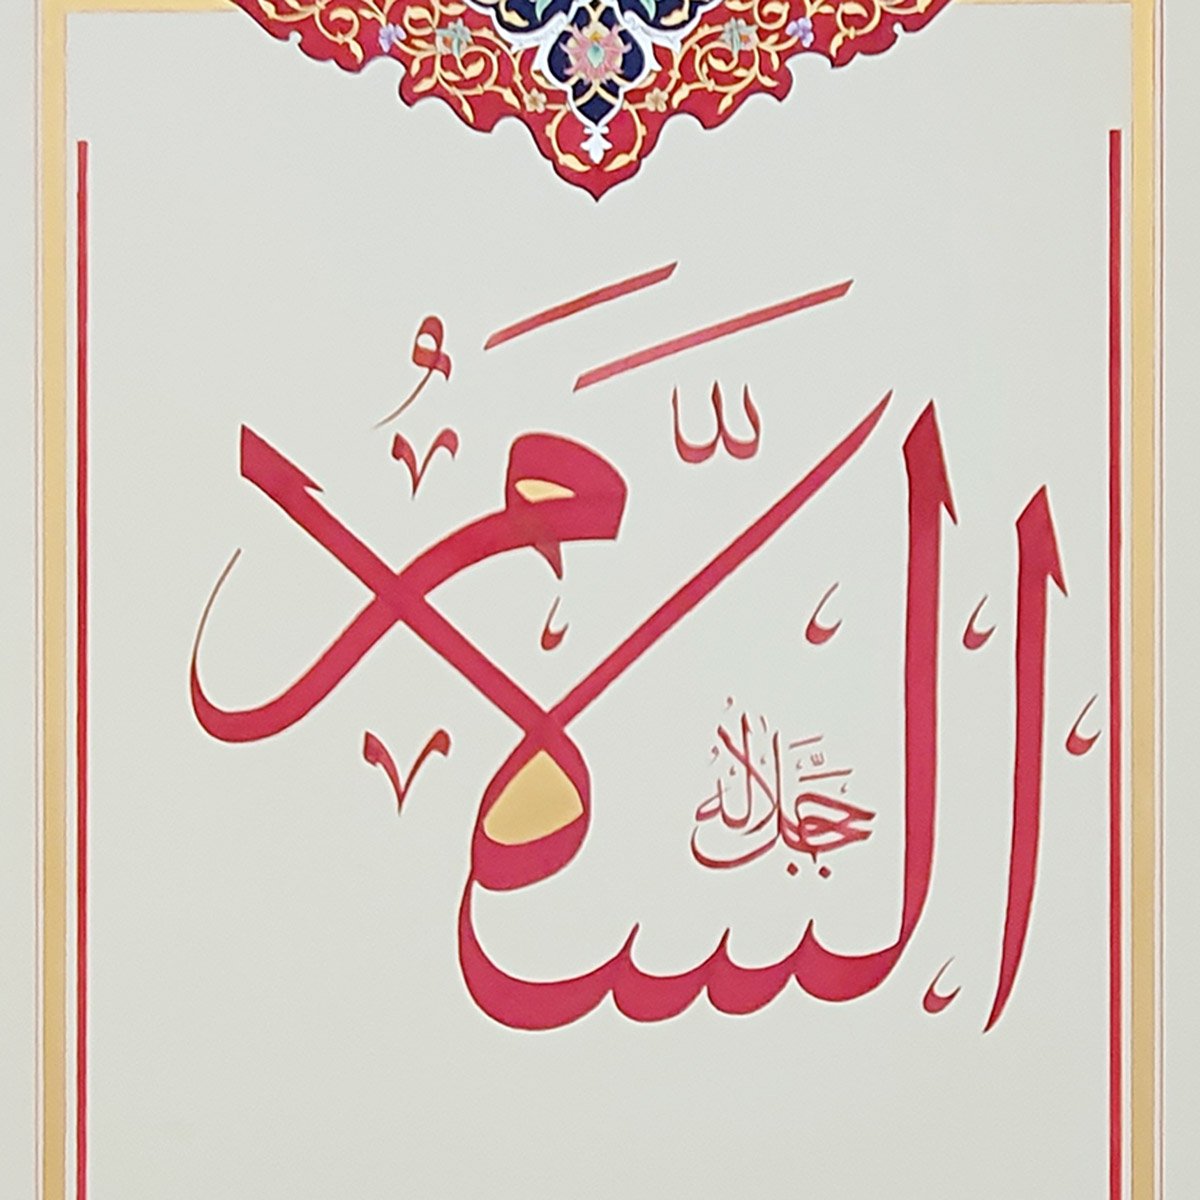 السَّلَامُ
جَلَّ جَلَالُهُ